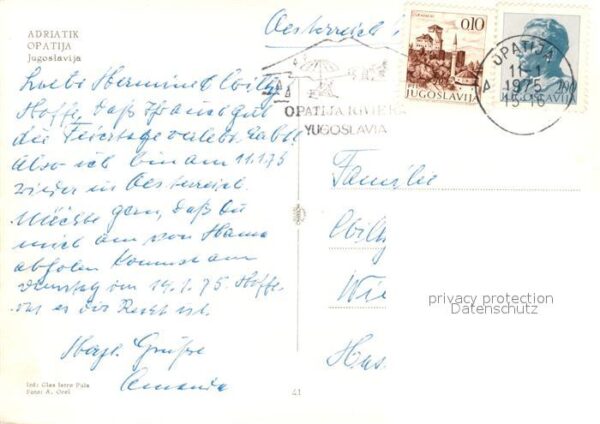 ADRIATIK
OPATIJA
Jugoslavija
Oesterreich
0,10
JUGOSLAVIJA
JUGOSLAVIJA
OPATIJA
11-1
1975
15-16
OPATIJA RIVIERA
YUGOSLAVIA
Liebe Hermine
Hoffe, daß Ihr auch gut
die Feiertage verlebt habt.
Also ich bin am 11.1.75
wieder in Oesterreich.
Möchte gern, daß du
mich am von Hama
abholen kommst am
Dienstag am 14.1.75. Hoffe,
daß es dir Recht ist.
Herzl. Grüße
Familie
Wie
privacy protection
Datenschutz
Izd: Glas Istre Pula
Foto: A. Orel
41